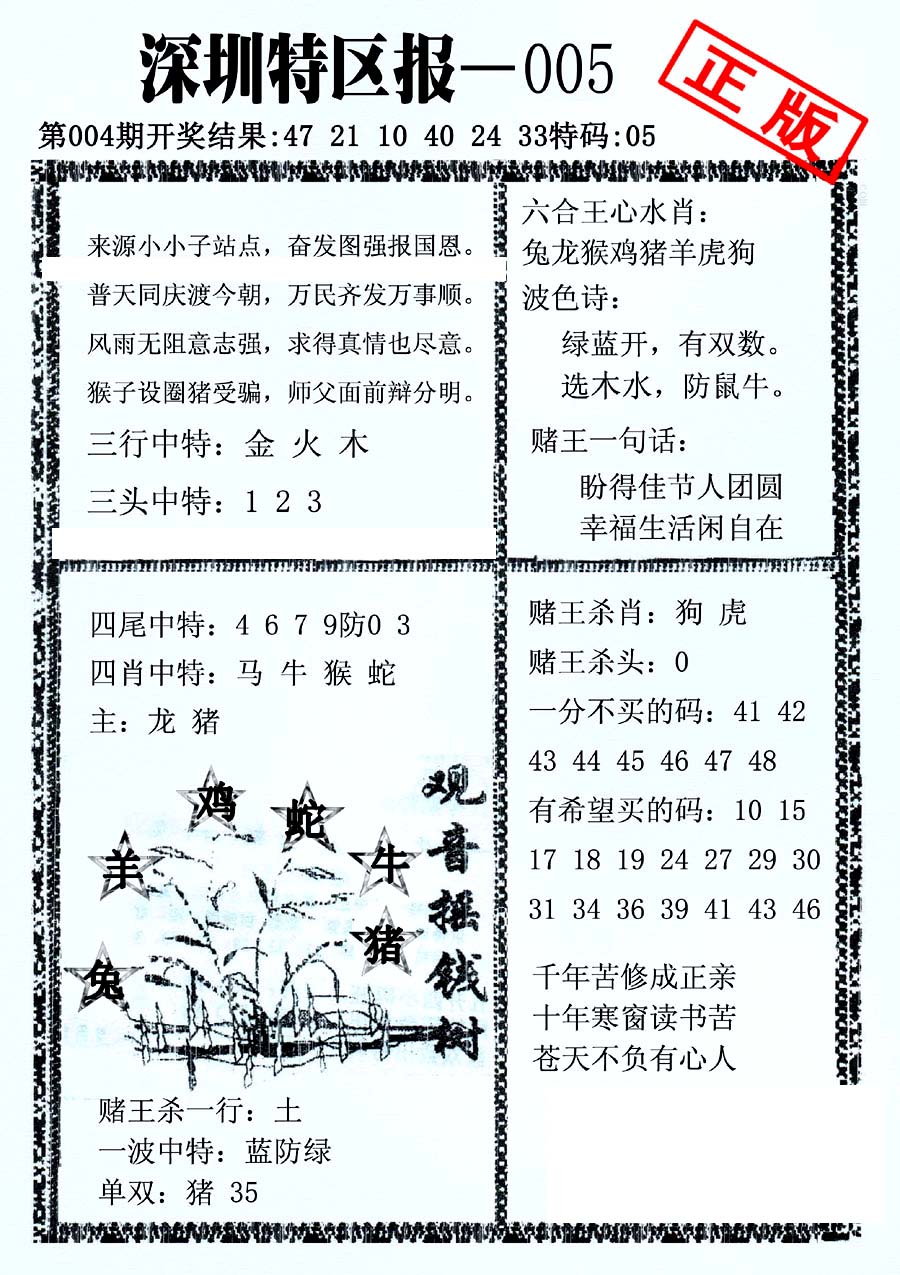 深圳特区报—005
正版
第004期开奖结果:47 21 10 40 24 33特码:05
来源小小子站点，奋发图强报国恩。
普天同庆渡今朝，万民齐发万事顺。
风雨无阻意志强，求得真情也尽意。
猴子设圈猪受骗，师父面前辩分明。
三行中特：金 火 木
三头中特：1 2 3
六合王心水肖：
兔龙猴鸡猪羊虎狗
波色诗：
绿蓝开，有双数。
选木水，防鼠牛。
赌王一句话：
盼得佳节人团圆
幸福生活闲自在
四尾中特：4 6 7 9防0 3
四肖中特：马 牛 猴 蛇
主：龙 猪
鸡
蛇
羊
牛
猪
兔
观音摇钱树
赌王杀一行：土
一波中特：蓝防绿
单双：猪 35
赌王杀肖：狗 虎
赌王杀头：0
一分不买的码：41 42
43 44 45 46 47 48
有希望买的码：10 15
17 18 19 24 27 29 30
31 34 36 39 41 43 46
千年苦修成正亲
十年寒窗读书苦
苍天不负有心人